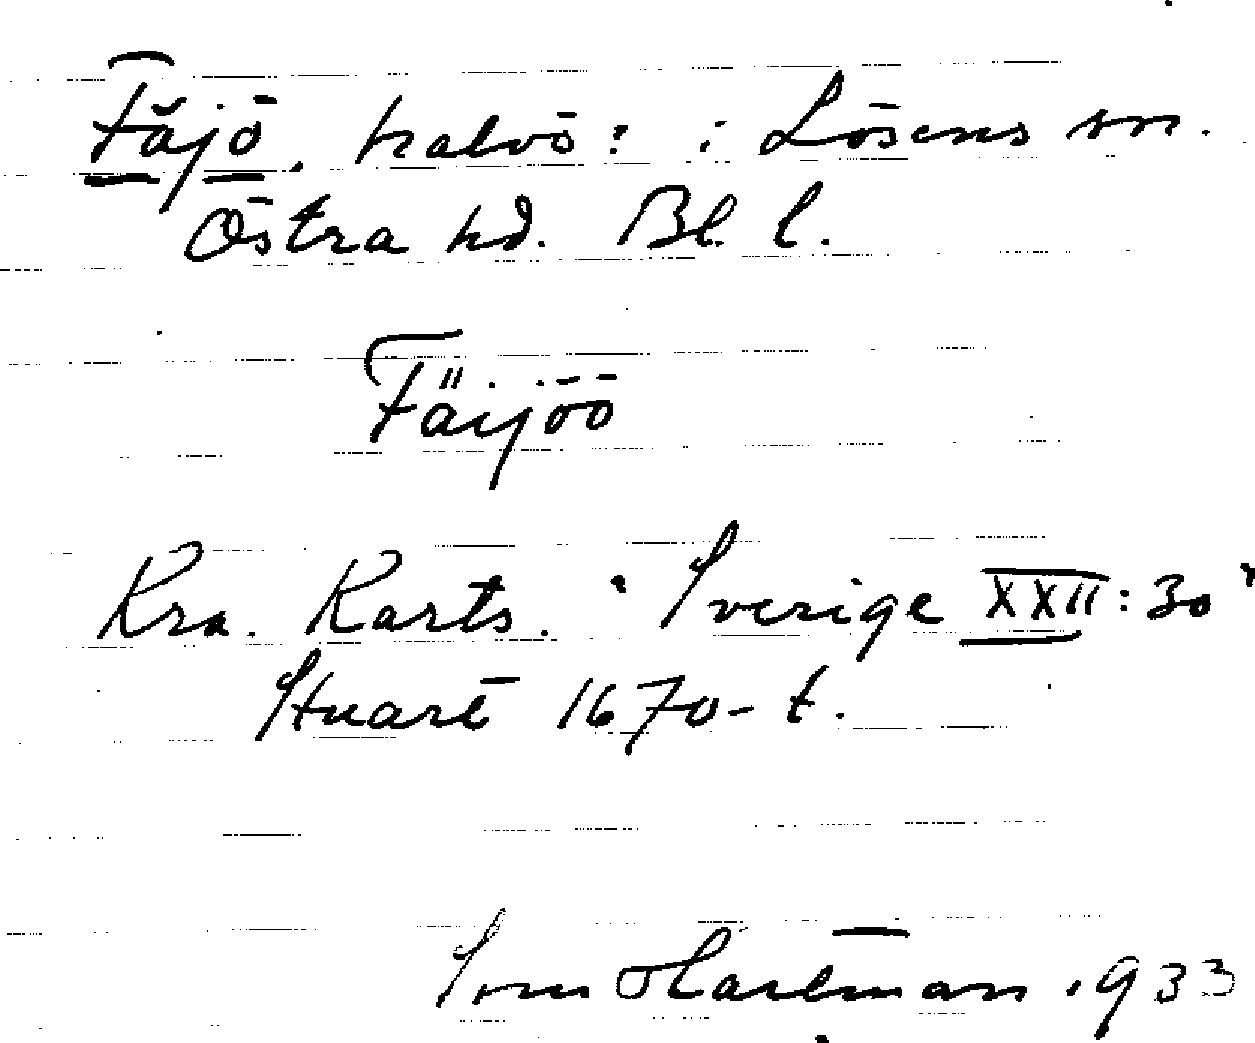 Fäjö, halvö: i Lösens sn.
Östra hd. Bl. l.
Fäijöö
Kra. Karts. "Sverige XXII:30"
Stuart 1670-t.
Sven Hartman 1933